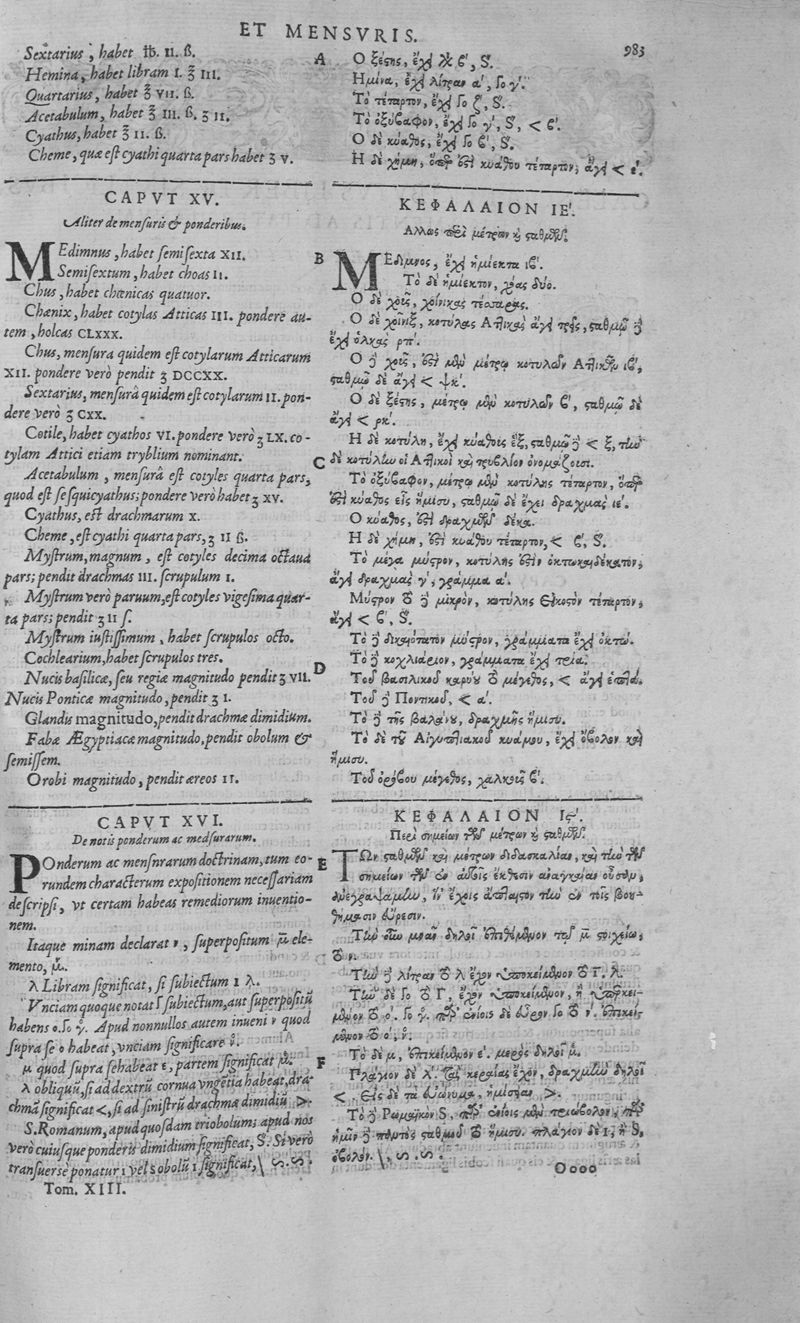 ET MENSVRIS.
983
Sextarius, habet ℔. II. ß.
Hemina, habet libram I. ℥ III.
Quartarius, habet ℥ VII. ß.
Acetabulum, habet ℥ III. ß. ʒ II.
Cyathus, habet ℥ II. ß.
Cheme, quæ est cyathi quarta pars habet ʒ V.
CAPVT XV.
Aliter de mensuris & ponderibus.
MEdimnus, habet semisexta XII.
Semisextum, habet choas II.
Chus, habet chœnicas quatuor.
Chœnix, habet cotylas Atticas III. pondere au-
tem, holcas CLXXX.
Chus, mensura quidem est cotylarum Atticarum
XII. pondere verò pendit ʒ DCCXX.
Sextarius, mensurâ quidem est cotylarum II. pon-
dere verò ʒ CXX.
Cotile, habet cyathos VI. pondere verò ʒ LX. co-
tylam Attici etiam tryblium nominant.
Acetabulum, mensurâ est cotyles quarta pars,
quod est sesquicyathus; pondere verò habet ʒ XV.
Cyathus, est drachmarum X.
Cheme, est cyathi quarta pars, ʒ II ß.
Mystrum, magnum, est cotyles decima octaua
pars; pendit drachmas III. scrupulum I.
Mystrum verò paruum, est cotyles vigesima quar-
ta pars; pendit ʒ II ſ.
Mystrum iustissimum, habet scrupulos octo.
Cochlearium, habet scrupulos tres.
Nucis basilicæ, seu regiæ magnitudo pendit ʒ VII.
Nucis Ponticæ magnitudo, pendit ʒ I.
Glandis magnitudo, pendit drachmæ dimidium.
Fabæ Ægyptiacæ magnitudo, pendit obolum &
semissem.
Orobi magnitudo, pendit æreos II.
CAPVT XVI.
De notis ponderum ac medsurarum.
POnderum ac mensnrarum doctrinam, tum eo-
rundem characterum expositionem necessariam
descripsi, vt certam habeas remediorum inuentio-
nem.
Itaque minam declarat ν, superpositum μ ele-
mento,
λ Libram significat, si subiectum I λ.
Vnciam quoque notat Γ subiectum, aut superpositũ
habens o. Apud nonnullos autem inueni ν quod
supra se o habeat, vnciam significare
μ quod supra se habeat ε, partem significat
λ obliquũ, si ad dextrũ cornua vngētia habeat, dra-
chmã significat <, si ad sinistrũ drachmæ dimidiũ >.
S. Romanum, apud quosdam triobolum; apud nos
verò cuiusque ponderis dimidium significat, S. Si verò
transuersè ponatur I vel S obolũ I significat,
Tom. XIII.
A
Ο ξέστης, ἔχει
Ημίνα, ἔχει λίτραν α΄, γο γ΄.
Τὸ τέταρτον, ἔχει γο ζ, S΄.
Τὸ ὀξύβαφον, ἔχει γο γ΄, S΄, < β΄.
Ο δὲ κύαθος, ἔχει γο β΄, S΄.
Η δὲ χήμη, ὅπερ ἐστὶ κυάθου τέταρτον, ἄγει < ε΄.
ΚΕΦΑΛΑΙΟΝ ΙΕ΄.
Αλλως περὶ μέτρων καὶ σταθμῶν.
B
ΜΕδιμνος, ἔχει ἡμίεκτα ιβ΄.
Τὸ δὲ ἡμίεκτον, χόας δύο.
Ο δὲ χοῦς, χοίνικας τέσσαρας.
Ο δὲ χοῖνιξ, κοτύλας Αττικὰς ἄγει τρεῖς, σταθμῷ δὲ
ἔχει ὁλκας ρπ΄.
Ο δὲ χοῦς, ἐστὶ μὲν μέτρῳ κοτυλῶν Αττικῶν ιβ΄,
σταθμῷ δὲ ἄγει < ψκ΄.
Ο δὲ ξέστης, μέτρῳ μὲν κοτυλῶν β΄, σταθμῷ δὲ
ἄγει < ρκ΄.
Η δὲ κοτύλη, ἔχει κυάθους ἕξ, σταθμῷ δὲ < ξ, τὴν
C
δὲ κοτύλην οἱ Αττικοὶ καὶ τρυβλίον ὀνομάζουσι.
Τὸ ὀξύβαφον, μέτρῳ μὲν κοτύλης τέταρτον, ὅπερ
ἐστὶ κύαθος εἷς ἥμισυ, σταθμῷ δὲ ἔχει δραχμὰς ιε΄.
Ο κύαθος, ἐστὶ δραχμῶν δέκα.
Η δὲ χήμη, ἐστὶ κυάθου τέταρτον, < β, S΄.
Τὸ μέγα μύστρον, κοτύλης ἐστὶν ὀκτωκαιδέκατον,
ἄγει δραχμὰς γ΄, γράμμα α΄.
Μύστρον τὸ δὲ μικρὸν, κοτύλης εἰκοστὸν τέταρτον,
ἄγει < β΄, S΄.
Τὸ δὲ δικαιότατον μύστρον, γράμματα ἔχει ὀκτώ.
Τὸ δὲ κοχλιάριον, γράμματα ἔχει τρία.
D
Τοῦ βασιλικοῦ καρύου τὸ μέγεθος, < ἄγει ἑπτά.
Τοῦ δὲ Ποντικοῦ, < α΄.
Τὸ δὲ τῆς βαλάνου, δραχμῆς ἥμισυ.
Τὸ δὲ τοῦ Αἰγυπτιακοῦ κυάμου, ἔχει ὀβολὸν καὶ
ἥμισυ.
Τοῦ ὀρόβου μέγεθος, χαλκοῦς β΄.
ΚΕΦΑΛΑΙΟΝ Ις΄.
Περὶ σημείων τῶν μέτρων καὶ σταθμῶν.
E
ΤΩν σταθμῶν καὶ μέτρων διδασκαλίαν, καὶ τὴν τῶν
σημείων τῶν ἐν αὐτοῖς ἔκθεσιν ἀναγκαίαν οὖσαν,
ἀνεγραψάμην, ἵν᾽ ἔχοις ἄπταιστον τὴν ἐν τοῖς βοη-
θήμασιν εὕρεσιν.
Τὴν οὖν μνᾶν δηλοῖ ἐπικείμενον τῷ μ στοιχείῳ,
τὸ ν.
Τὴν δὲ λίτραν τὸ λ ἔχον ὑποκείμενον τὸ Γ. λ.
Τὴν δὲ γο τὸ Γ, ἔχον ὑποκείμενον, ἢ ὑπερκεί-
μενον τὸ ο΄. παρ᾽ ἐνίοις δὲ εὗρον τὸ ν΄. ἐπικεί-
μενον τὸ ο΄,
Τὸ δὲ μ, ἐπικείμενον ε΄. μερὸς δηλοῖ
F
Πλάγιον δὲ λ. τὰς κεραίας ἔχον, δραχμὴν δηλοῖ
<. Εἰς δὲ τὰ εὐώνυμα, ἡμίσειαν >.
Τὸ δὲ Ρωμαϊκὸν S, παρ᾽ ἐνίοις μὲν τριώβολον, παρ᾽
ἡμῖν δὲ παντὸς σταθμοῦ τὸ ἥμισυ. πλάγιον δὲ ι, ἢ S,
ὀβολόν.
Oooo